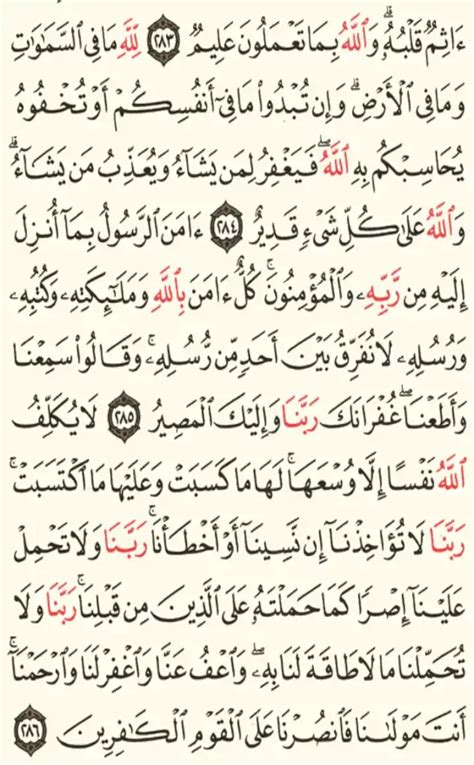 ءَاثِمٌ قَلْبُهُۥۗ وَٱللَّهُ بِمَا تَعْمَلُونَ عَلِيمٌ ٢٨٣ لِّلَّهِ مَا فِى ٱلسَّمَٰوَٰتِ
وَمَا فِى ٱلْأَرْضِۗ وَإِن تُبْدُوا۟ مَا فِىٓ أَنفُسِكُمْ أَوْ تُخْفُوهُ
يُحَاسِبْكُم بِهِ ٱللَّهُۖ فَيَغْفِرُ لِمَن يَشَآءُ وَيُعَذِّبُ مَن يَشَآءُۗ
وَٱللَّهُ عَلَىٰ كُلِّ شَىْءٍ قَدِيرٌ ٢٨٤ ءَامَنَ ٱلرَّسُولُ بِمَآ أُنزِلَ
إِلَيْهِ مِن رَّبِّهِۦ وَٱلْمُؤْمِنُونَۚ كُلٌّ ءَامَنَ بِٱللَّهِ وَمَلَٰٓئِكَتِهِۦ وَكُتُبِهِۦ
وَرُسُلِهِۦ لَا نُفَرِّقُ بَيْنَ أَحَدٍ مِّن رُّسُلِهِۦۚ وَقَالُوا۟ سَمِعْنَا
وَأَطَعْنَاۖ غُفْرَانَكَ رَبَّنَا وَإِلَيْكَ ٱلْمَصِيرُ ٢٨٥ لَا يُكَلِّفُ
ٱللَّهُ نَفْسًا إِلَّا وُسْعَهَاۚ لَهَا مَا كَسَبَتْ وَعَلَيْهَا مَا ٱكْتَسَبَتْۗ
رَبَّنَا لَا تُؤَاخِذْنَآ إِن نَّسِينَآ أَوْ أَخْطَأْنَاۚ رَبَّنَا وَلَا تَحْمِلْ
عَلَيْنَآ إِصْرًا كَمَا حَمَلْتَهُۥ عَلَى ٱلَّذِينَ مِن قَبْلِنَاۚ رَبَّنَا وَلَا
تُحَمِّلْنَا مَا لَا طَاقَةَ لَنَا بِهِۦۖ وَٱعْفُ عَنَّا وَٱغْفِرْ لَنَا وَٱرْحَمْنَآۚ
أَنتَ مَوْلَىٰنَا فَٱنصُرْنَا عَلَى ٱلْقَوْمِ ٱلْكَٰفِرِينَ ٢٨٦